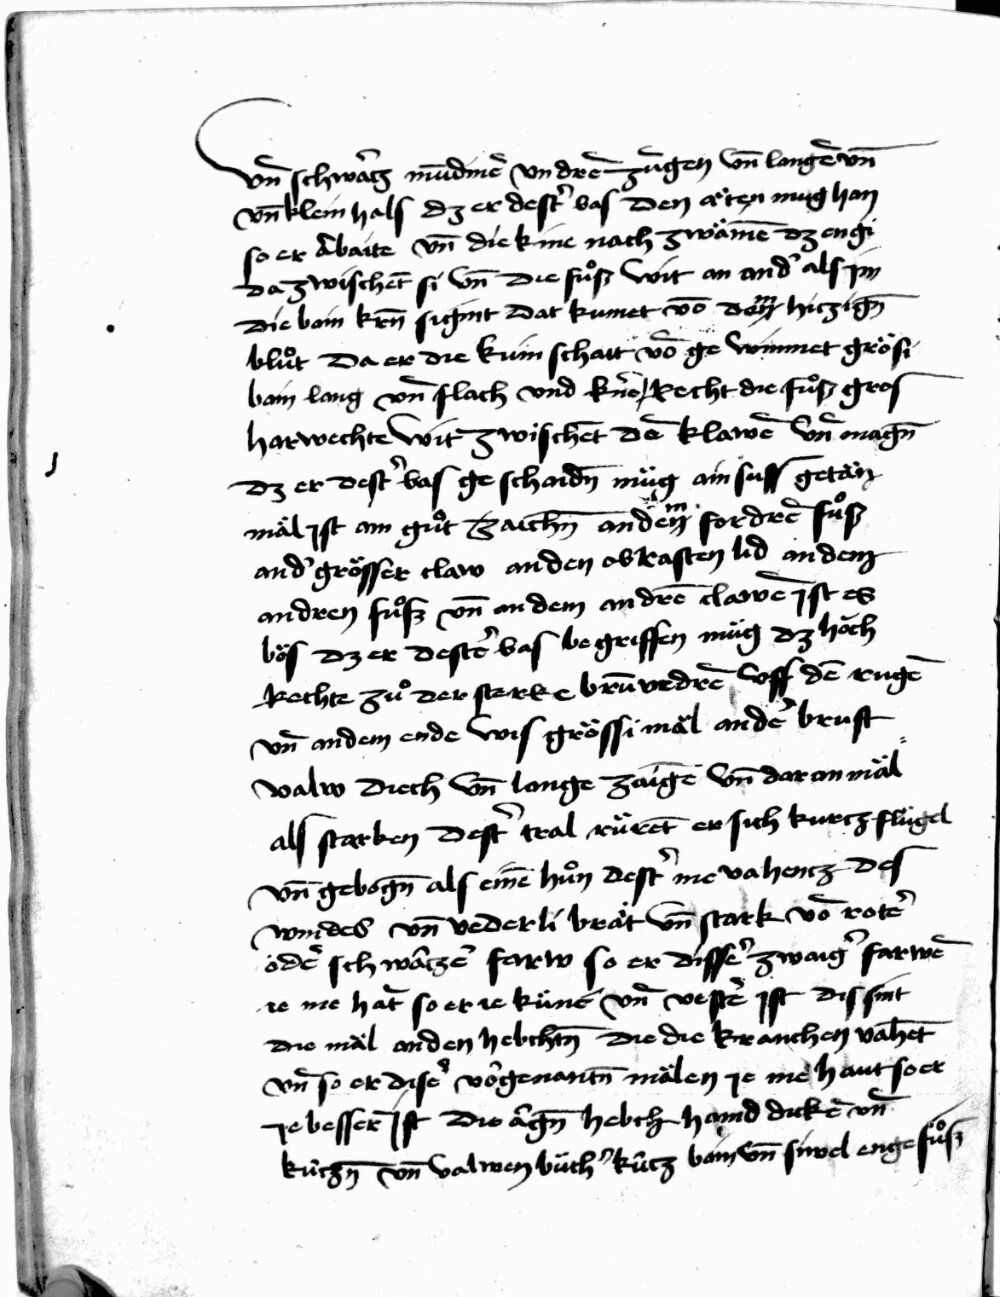 vn̄ schwärcz mūdine vndrē zūgen vn̄ langē vn̄
vn̄ klein hals dz er dest' bas den aͤten mug han
so er Arbaite vn̄ die kine nach zwämē dz engi
da zwischēt si vn̄ die fuͦß wit an and' als jm
die bain krn̄ sigint dat kumet vō dem hiczign̄
bluͦt da er die kuin schatt vō ge winnet grösi
bain lang vn̄ flach vnd kn̄e Recht die fuͦß gros
harwechte wit zwischēt dē klawē vn̄ magn̄
dz er dest' bas ge schaidn̄ müg ain suss getän
mäl jst ain guͦt zaichn̄ an dem fordrē fuͦß
and' grösser claw an den obrasten lid an dem
andren fuͦß vn̄ an dem andrē clawē jst es
bös dz er destē' bas begriffen müg dz höch
Rechte zuͦ der sterke brū vedrē vff dē rugē
vn̄ an dem ende wis grössi mäl an dē' brust
valw diech vn̄ lange zaigē vn̄ dar an mäl
als starben dest' tral rürēt er sich kurcz flügel
vn̄ gebogn̄ als einē huͦn dest' me vahentz des
windes vn̄ vederli brät vn̄ stark vō rotē'
odē' schwarczē' farw so er dissē' zwaig' farwē
ie me hat so er ie künē' vn̄ vestē' jst dis sint
die mäl an den hebchn̄ die die kranchen vahēt
vn̄ so er disē' vorgenantn̄ mälen je me haut so er
je besser jst die argn̄ hebch hand dickē vn̄
kurczn̄ vn̄ valwen büch' kurcz bain vn̄ sinwel enge fuͦß